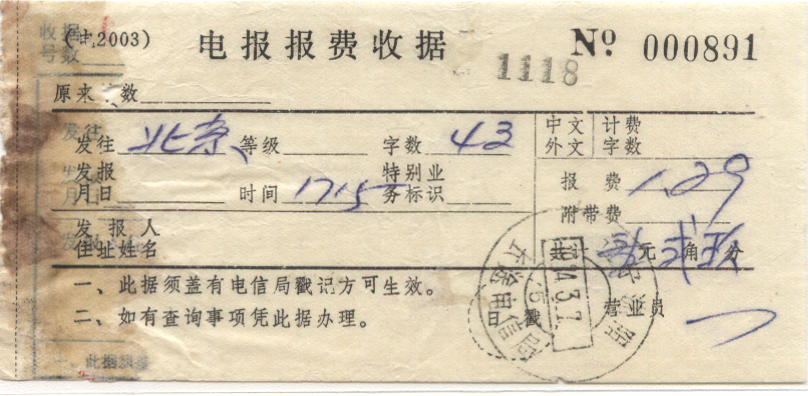 收据
号数
(中2003) 电报报费收据 № 000891
1118
原来 数
发往 北京 等级 字数 43 中文 外文 计费字数
发报月日 时间 1715 特别业务标识 报费 1.29
附带费
发报人住址姓名 共计 元 角 分
一、此据须盖有电信局戳记方可生效。 营业员
二、如有查询事项凭此据办理。
一、此据须盖